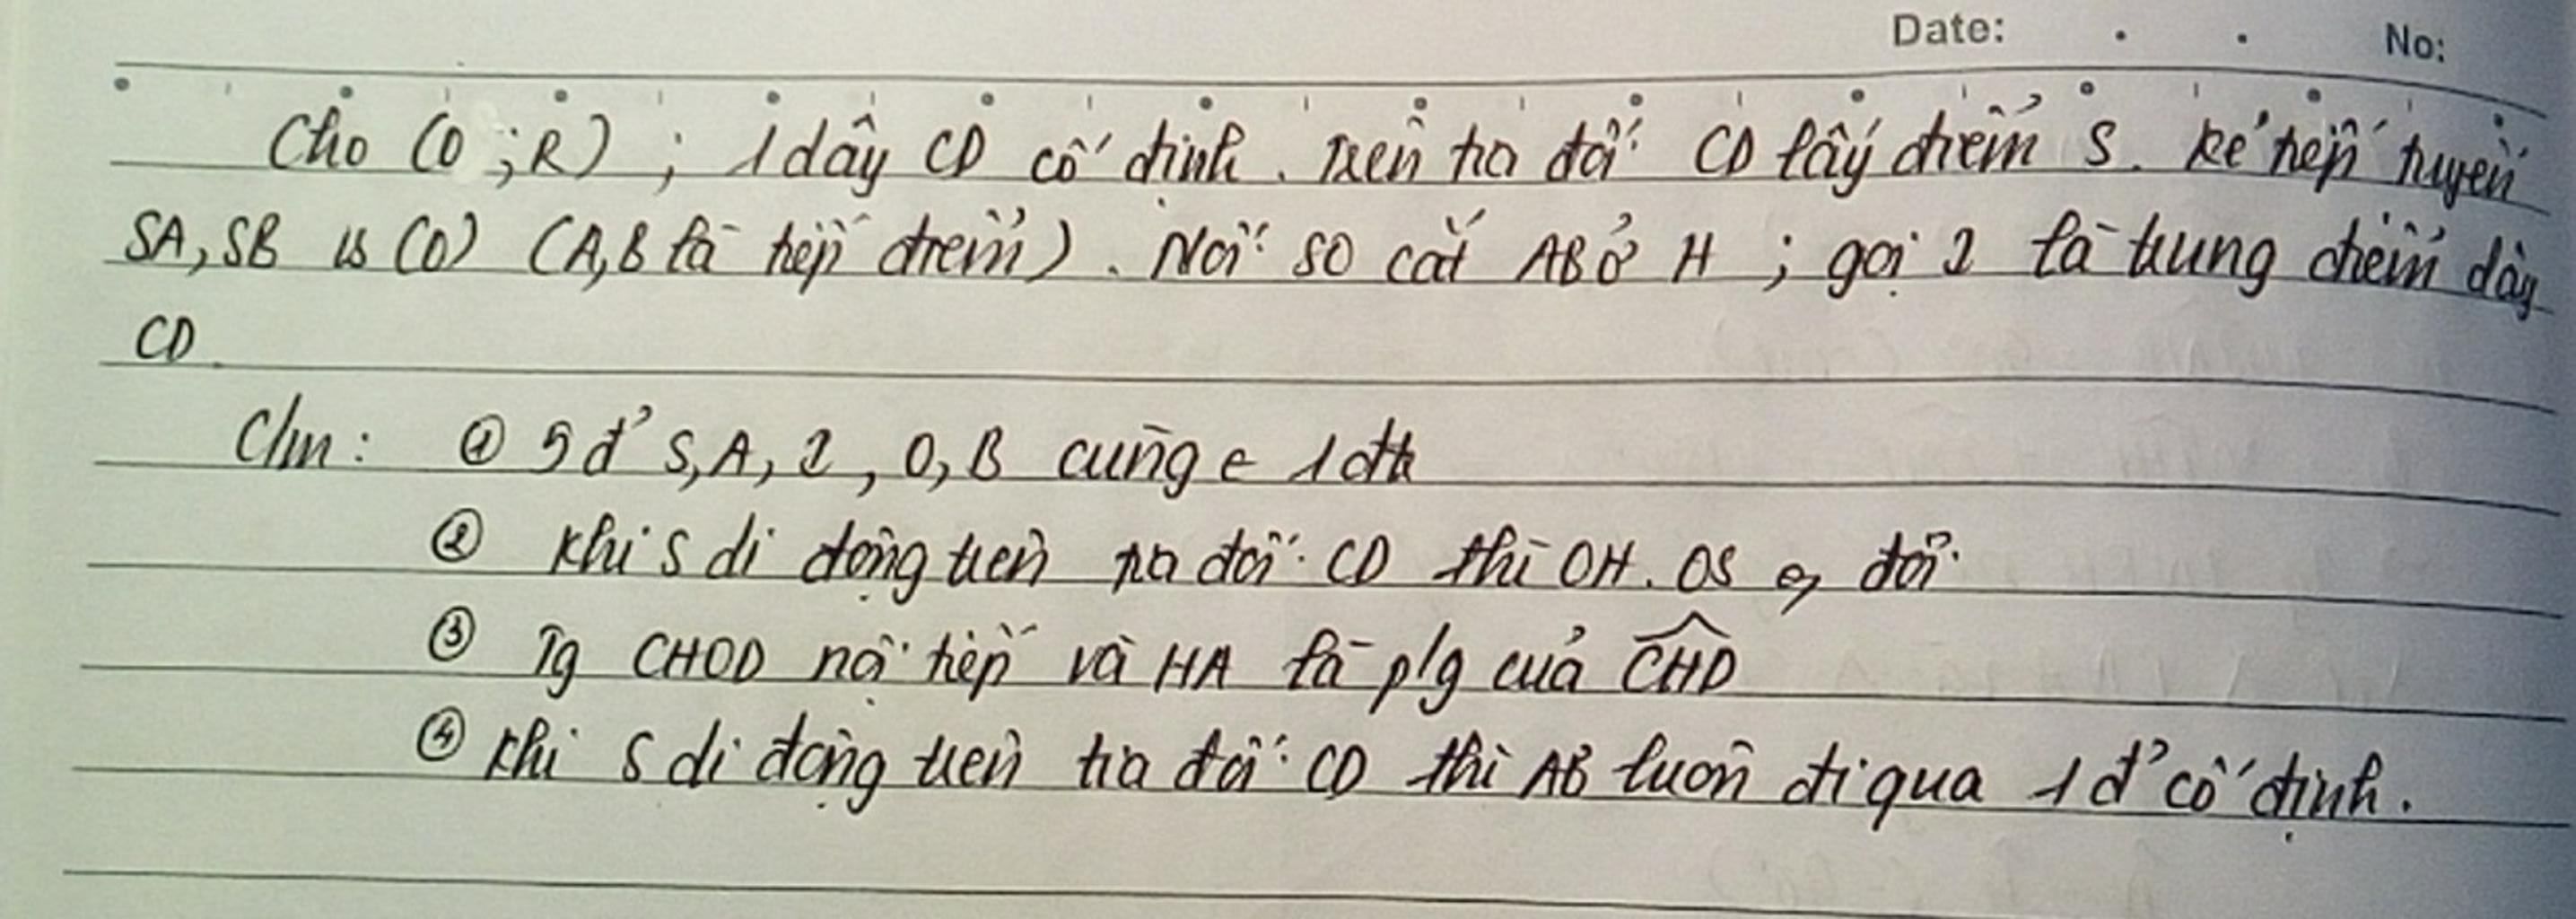 Date: . . No:
Cho (O;R); 1 dây CD cố định. Trên tia đối CD lấy điểm S. Kẻ tiếp tuyến
SA, SB (O) (A,B là tiếp điểm). Nối SO cắt AB ở H; gọi I là trung điểm dây
CD
C/m: ① 5 đ' S,A,I,O,B cùng ∈ 1 đtr
② Khi S di động trên tia đối CD thì OH.OS đổi
③ Tg CHOD nội tiếp và HA là p/g của CHD
④ Khi S di động trên tia đối CD thì AB luôn đi qua 1 đ' cố định.